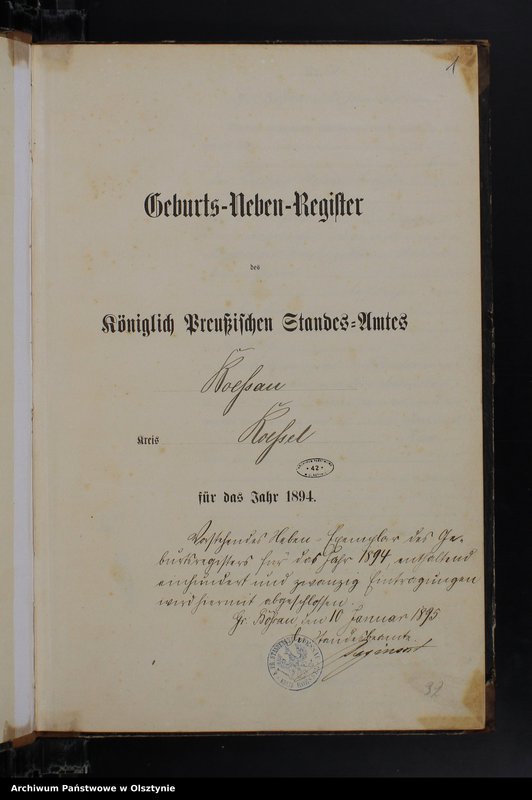 1
Geburts-Neben-Register
des
Königlich Preußischen Standes-Amtes
Roessau
Kreis Roessel
42
für das Jahr 1894.
Vorstehendes Neben-Exemplar des Ge-
burtsregisters für das Jahr 1894, enthaltend
einhundert und zwanzig Eintragungen
wird hiermit abgeschlossen.
Gr. den 10 Januar 1895
Der Standesbeamte
32
Archiwum Państwowe w Olsztynie